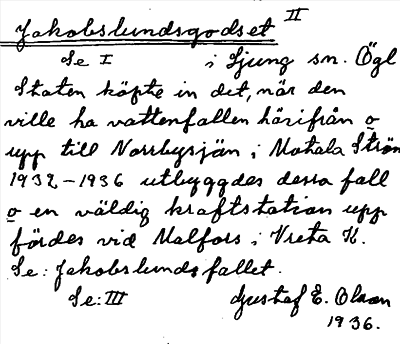 Jakobslundsgodset II
Se I i Ljung sn. Ögl
Staten köpte in det, när den
ville ha vattenfallen härifrån o
upp till Norrbysjön i Motala Ström
1932-1936 utbyggdes dessa fall
o en väldig kraftstation upp
fördes vid Malfors i Vreta K.
Se: Jakobslundsfallet.
Se: III Gustaf E. Olson
1936.